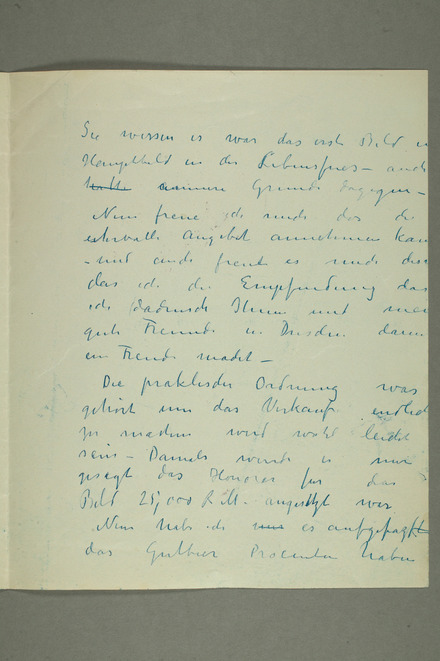 Sie wissen es war das erste Bild
Hauptbild in der Lebensfries – auch
hatte Grunde dagegen –
Nun freue ich mich das
ehrvolle Angebot annehmen kan
– und auch freut es mich
das ich die Empfindung das
ich dadurch Ihnen und
gute Freunde in Dresden
ein Freude macht –
Die praktische Ordnung was
gehört um das Verkauf endlich
zu machen wird wohl leicht
sein – Damals wurde es mir
gesagt das Honorar für das
Bild 25,000 R.M. angesetzt war
Nun hab ich nur es aufgefasst
das Gutbier Procenten haben